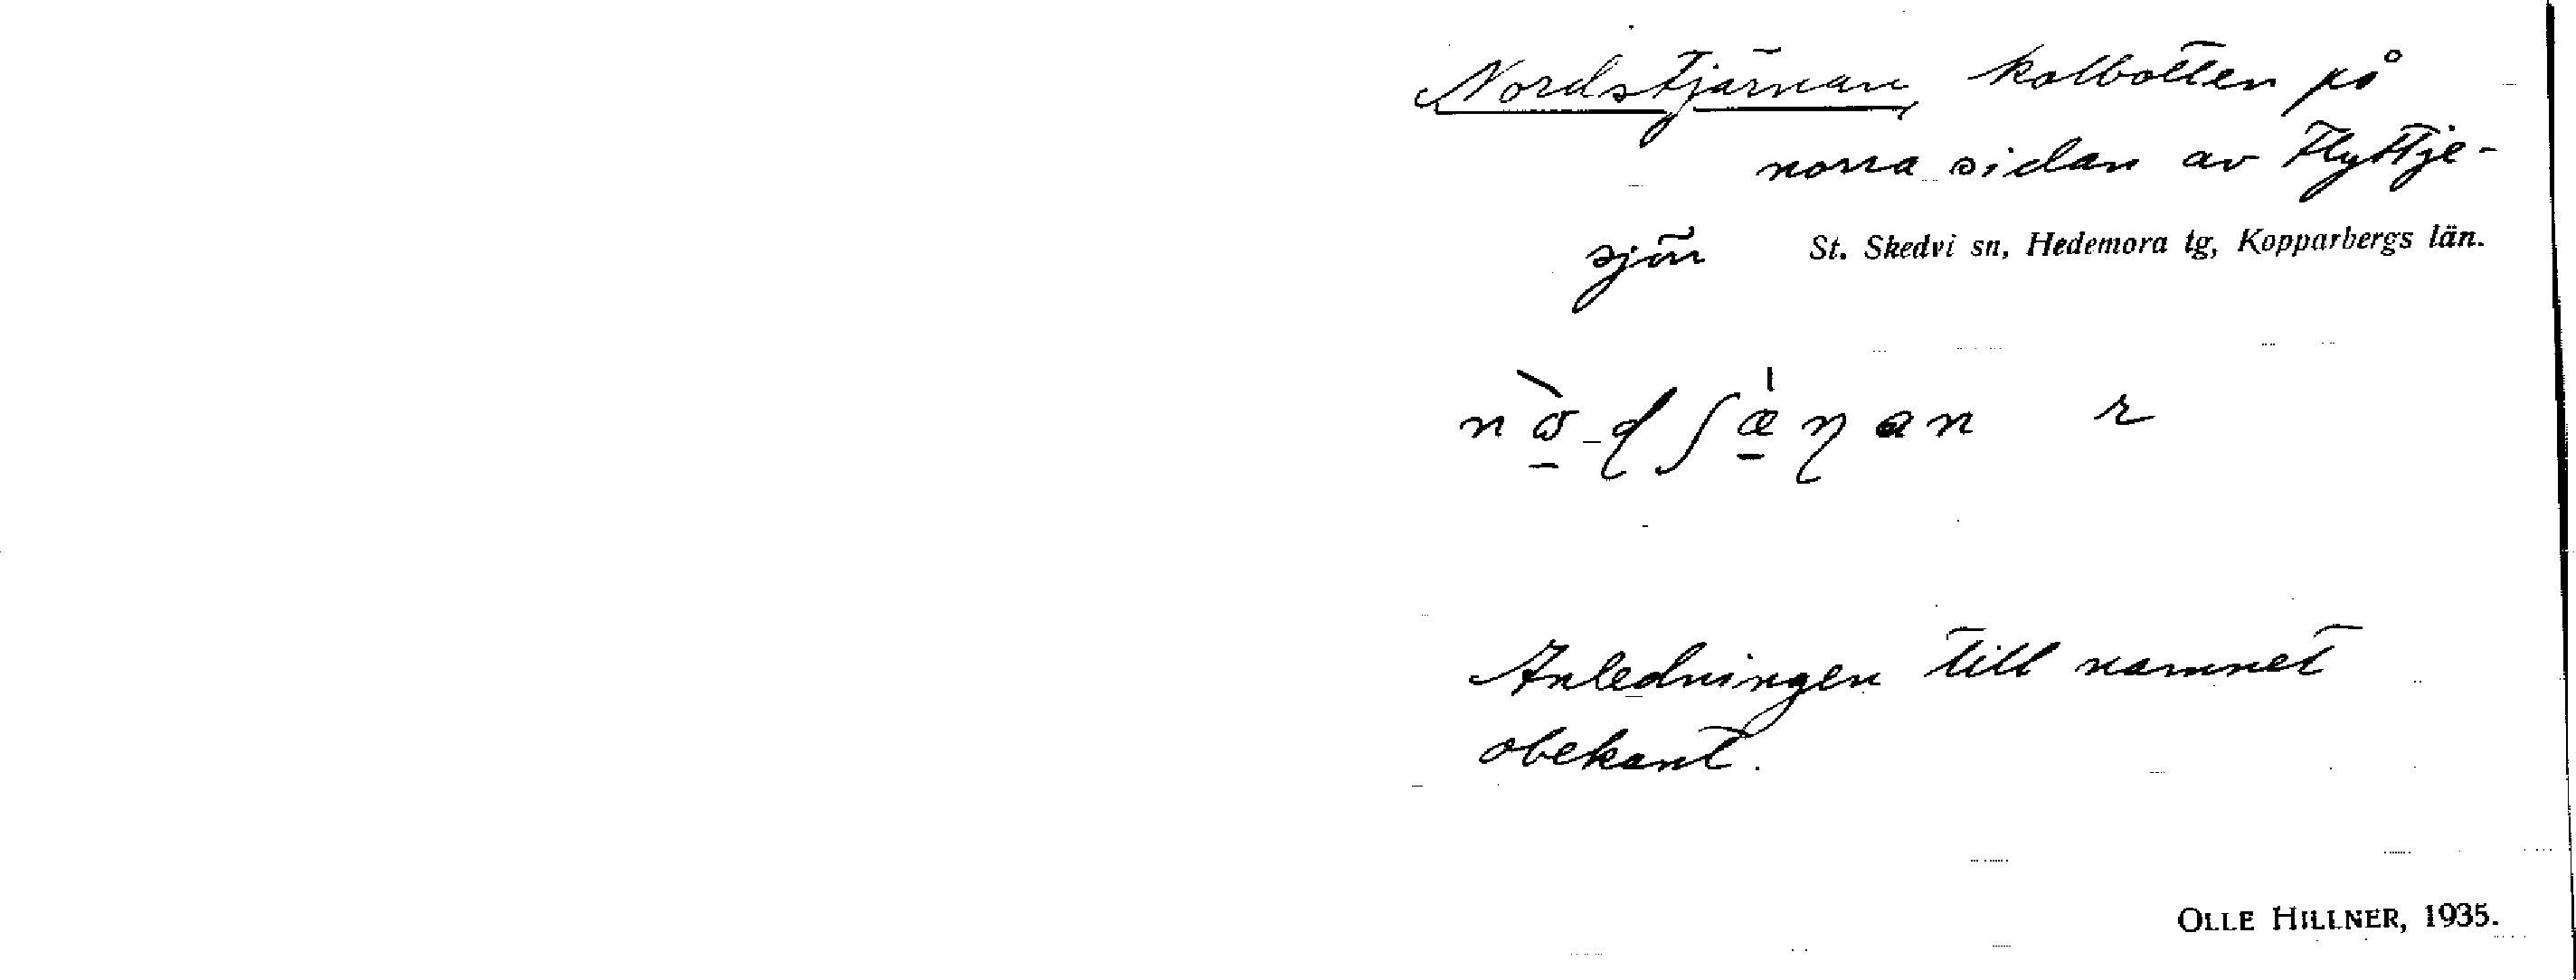 Nordstjärnan, kolbotten på
norra sidan av Flyttje-
sjön St. Skedvi sn, Hedemora tg, Kopparbergs län.
Anledningen till namnet
obekant.
OLLE HILLNER, 1935.